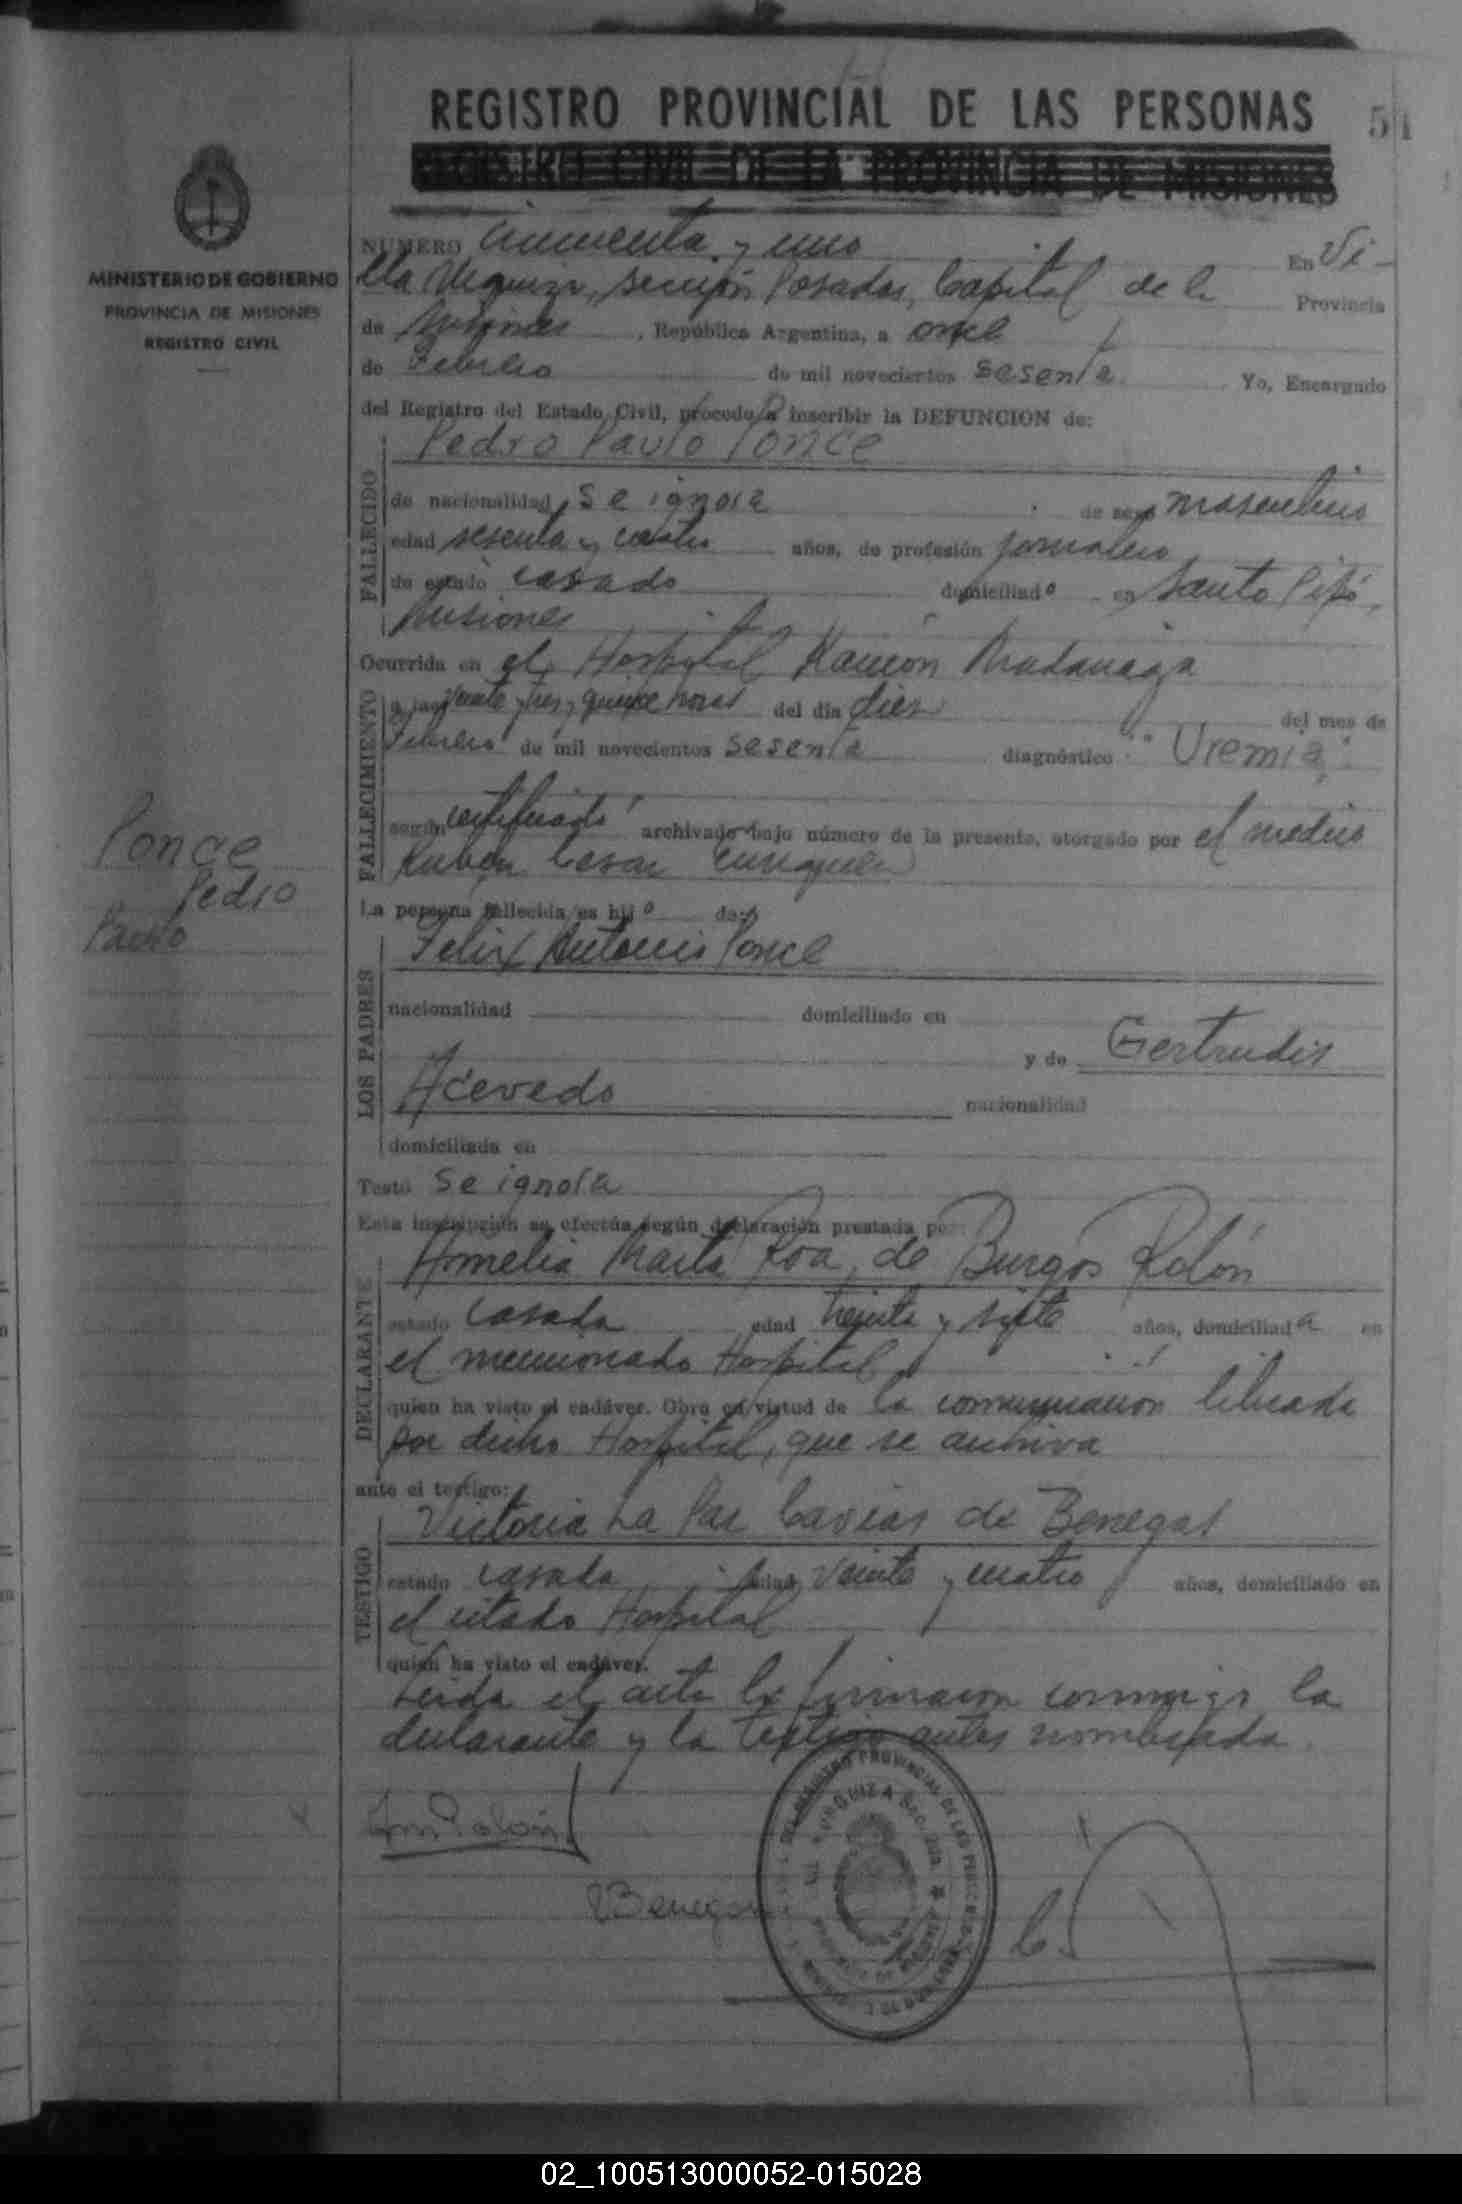 REGISTRO PROVINCIAL DE LAS PERSONAS 51
REGISTRO CIVIL DE LA PROVINCIA DE MISIONES
MINISTERIO DE GOBIERNO
PROVINCIA DE MISIONES
REGISTRO CIVIL
NUMERO cincuenta y uno En Vi-
lla Urquiza, sección Posadas, Capital de la Provincia
de Misiones, República Argentina, a once
de Febrero de mil novecientos sesenta Yo, Encargado
del Registro del Estado Civil, procedo a inscribir la DEFUNCION de:
Pedro Paulo Ponce
FALLECIDO
de nacionalidad se ignora de sexo masculino
edad sesenta y cuatro años, de profesión jornalero
de estado casado domiciliado en Santo Pipó,
Misiones
Ocurrida en el Hospital Ramón Madariaga
FALLECIMIENTO
a las veinte y tres, quince horas del día diez del mes de
Febrero de mil novecientos sesenta diagnóstico "Uremia"
según certificado archivado bajo número de la presente, otorgado por el médico
Rubén Cesar
Ponce
Pedro
Paulo
La persona fallecida es hijo de:
LOS PADRES
Felix Antonio Ponce
nacionalidad domiciliado en
y de Gertrudis
Acevedo nacionalidad
domiciliada en
Testó se ignora
Esta inscripción se efectúa según declaración prestada por:
DECLARANTE
Amelia Marta Roa de Burgos Rolón
estado casada edad treinta y siete años, domiciliada en
el mencionado Hospital
quien ha visto el cadáver. Obra en virtud de la comunicación librada
por dicho Hospital, que se archiva
ante el testigo:
TESTIGO
Victoria La Paz Cavias de Benegas
estado casada edad veinte y cuatro años, domiciliado en
el citado Hospital
quien ha visto el cadáver.
Leída el acta la firmaron conmigo la
declarante y la testigo antes nombrada.
Benegas
02_100513000052-015028